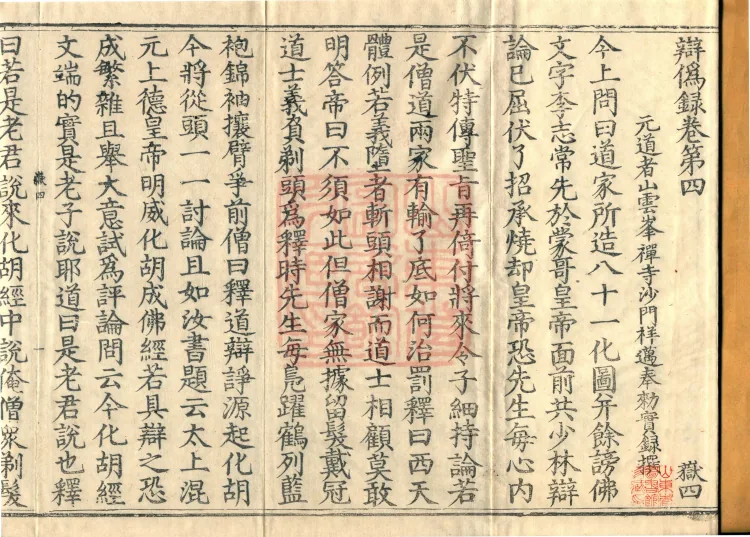 辯僞録卷第四 嶽四
元道者山雲峯禪寺沙門祥邁奉勑實録撰
今上問曰道家所造八十一化圖幷餘謗佛
文字李志常先於蒙哥皇帝面前共少林辯
論已屈伏了招承燒却皇帝恐先生每心内
不伏特傳聖旨再倚付將來今子細持論若
是僧道兩家有輸了底如何治罰釋曰西天
體例若義墮者斬頭相謝而道士相顧莫敢
明答帝曰不須如此但僧家無據留髮戴冠
道士義負剃頭爲釋時先生每鳧躍鶴列藍
袍錦袖攘臂爭前僧曰釋道辯諍源起化胡
今將從頭一一討論且如汝書題云太上混
元上德皇帝明威化胡成佛經若具辯之恐
成繁雜且舉大意試爲評論問云今化胡經
文端的實是老子說耶道曰是老君說也釋
嶽四 一
曰若是老君說來化胡經中說俺僧衆剃髮